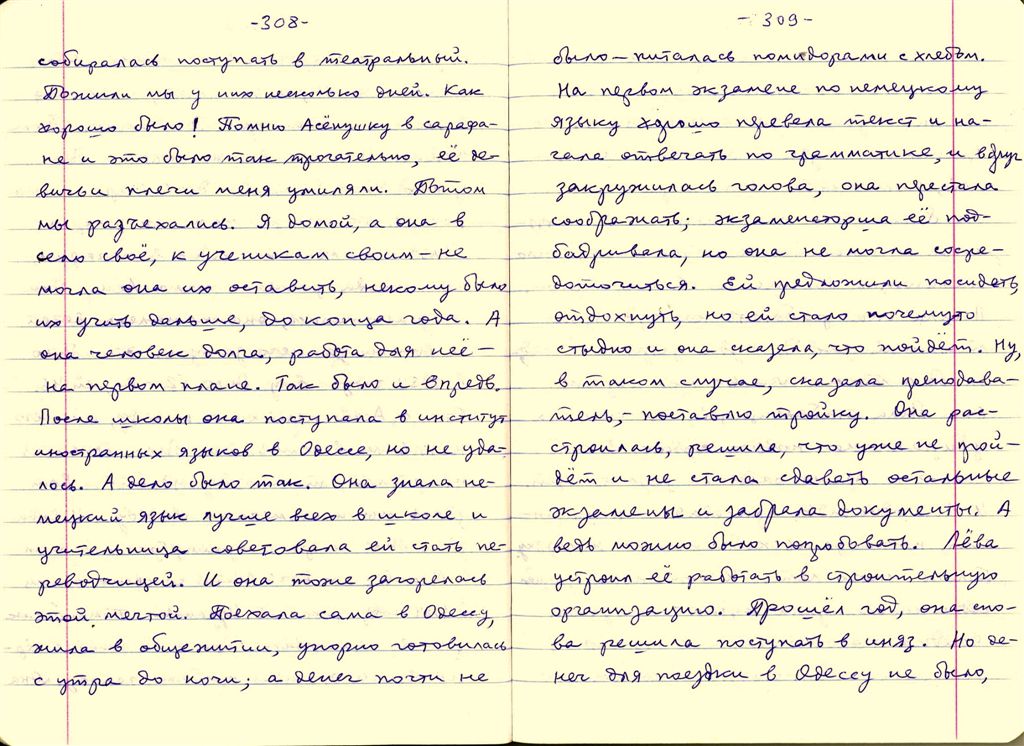 -308-
собиралась поступать в театральный.
Пожили мы у них несколько дней. Как
хорошо было! Помню Асёнушку в сарафа-
не и это было так трогательно, её де-
вичьи плечи меня умиляли. Потом
мы разъехались. Я домой, а она в
село своё, к ученикам своим – не
могла она их оставить, некому было
их учить дальше, до конца года. А
она человек долга, работа для неё –
на первом плане. Так было и впредь.
После школы она поступала в институт
иностранных языков в Одессе, но не уда-
лось. А дело было так. Она знала не-
мецкий язык лучше всех в школе и
учительница советовала ей стать пе-
реводчицей. И она тоже загорелась
этой мечтой. Поехала сама в Одессу,
жила в общежитии, упорно готовилась
с утра до ночи; а денег почти не
-309-
было – питалась помидорами с хлебом.
На первом экзамене по немецкому
языку хорошо перевела текст и на-
чала отвечать по грамматике, и вдруг
закружилась голова, она перестала
соображать; экзаменаторша её под-
бадривала, но она не могла сосре-
доточиться. Ей предложили посидеть,
отдохнуть, но ей стало почемуто
стыдно и она сказала, что пойдёт. Ну,
в таком случае, сказала преподава-
тель, – поставлю тройку. Она рас-
строилась, решила, что уже не прой-
дёт и не стала сдавать остальные
экзамены и забрала документы. А
ведь можно было попробовать. Лёва
устроил её работать в строительную
организацию. Прошёл год, она сно-
ва решила поступать в иняз. Но де-
нег для поездки в Одессу не было,